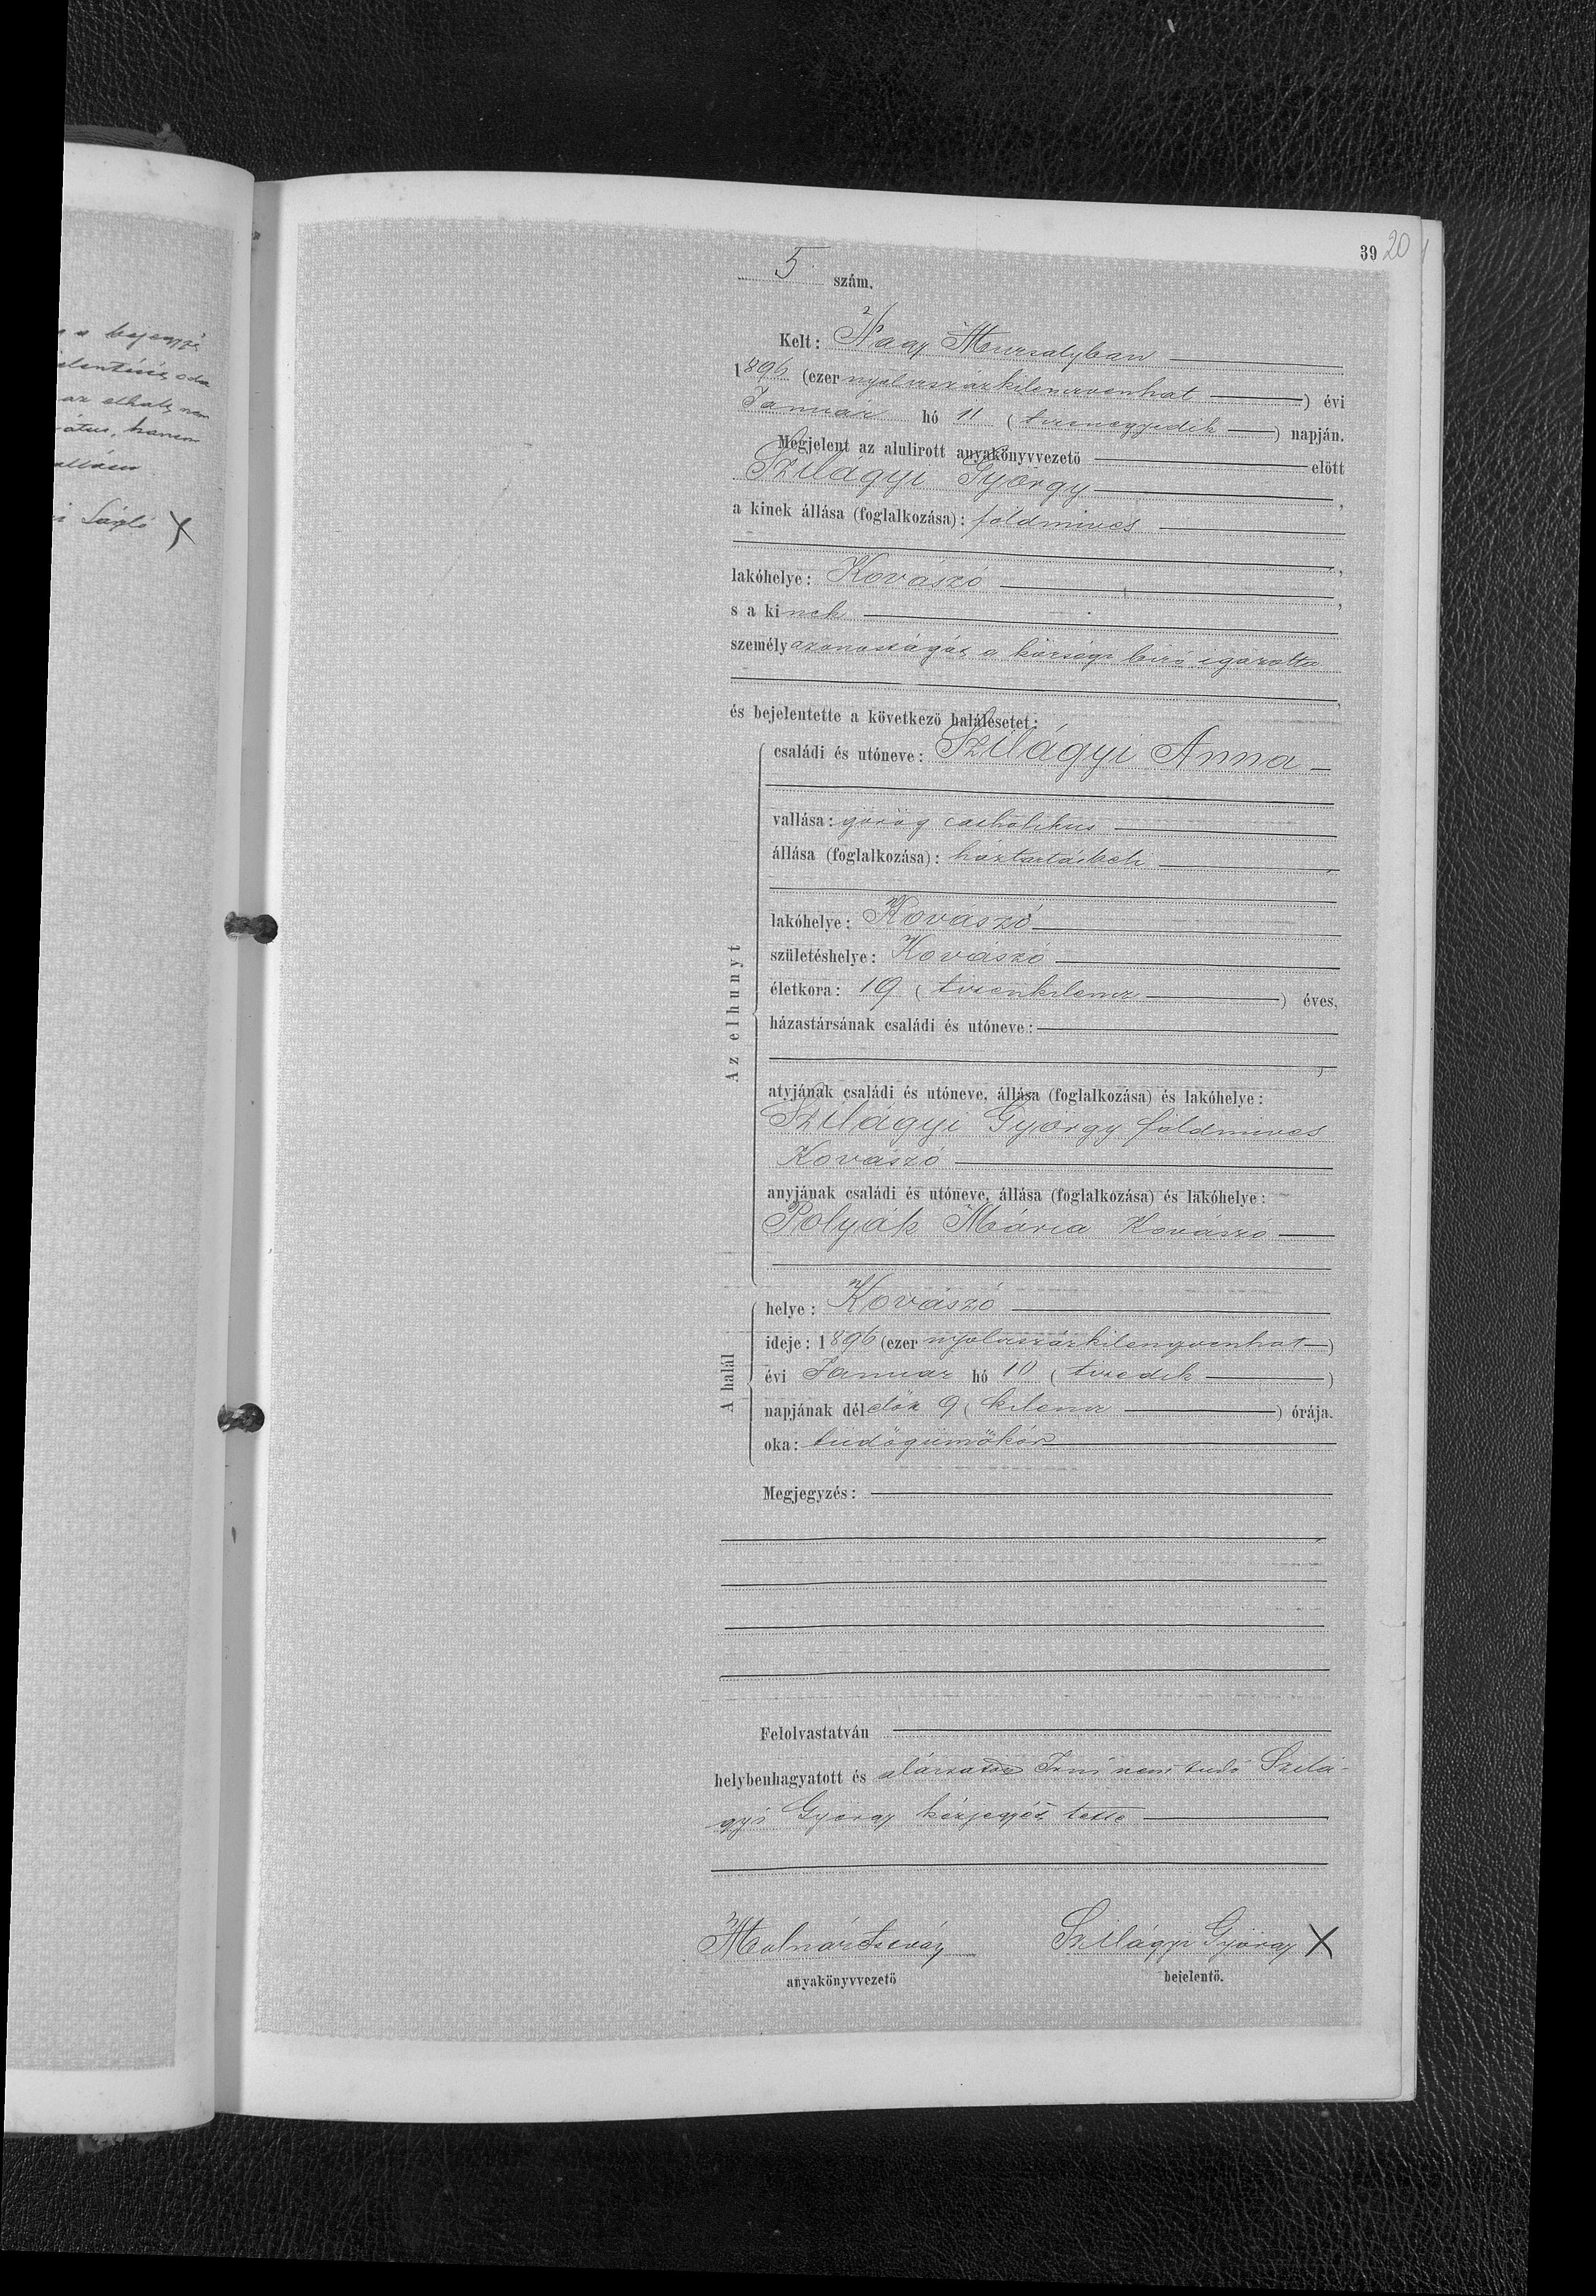 39 20
5 szám.
Kelt: Nagy Muzsalyban
1896 (ezer nyolczszázkilenczvenhat) évi
Január hó 11 (tizenegyedik) napján.
Megjelent az alulirott anyakönyvvezető előtt
Szilágyi György,
a kinek állása (foglalkozása): földmives
lakóhelye: Kovászó,
s a kinek
személyazonosságát a községi biró igazolta
és bejelentette a következő halálesetet:
Az elhunyt
családi és utóneve: Szilágyi Anna
vallása: görög catholikus
állása (foglalkozása): háztartásbeli
lakóhelye: Kovászó
születéshelye: Kovászó
életkora: 19 (tizenkilencz) éves,
házastársának családi és utóneve:
atyjának családi és utóneve, állása (foglalkozása) és lakóhelye:
Szilágyi György földmives
Kovászó
anyjának családi és utóneve, állása (foglalkozása) és lakóhelye:
Polyák Mária Kovászó
A halál
helye: Kovászó
ideje: 1896 (ezer nyolczszázkilenczvenhat)
évi Január hó 10 (tizedik)
napjának délelőtt 9 (kilencz) órája.
oka: tüdőgümőkór
Megjegyzés:
Felolvastatván
helybenhagyatott és aláiratott Irni nem tudó Szilá-
gyi György kézjegyét tette
Molnár István Szilágyi György X
anyakönyvvezető bejelentő.
a bejegyzé
az elhalt
hanem
László X